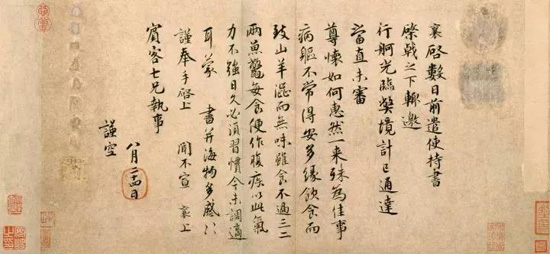 襄啓數日前遣使持書
棨戟之下輒邀
行舸光臨弊境計已通達
當直未審
尊懷如何惠然一來殊為佳事
病軀不常得安多緣飲食而
致山羊澀而無味雖食不過三二
兩魚蟹每食便作腹疾以此氣
力不強日久必須習慣今未調適
耳蒙 書并海物多感〻
謹奉手啓上 聞不宣 襄上
賓客七兄執事
八月廿四日
謹空